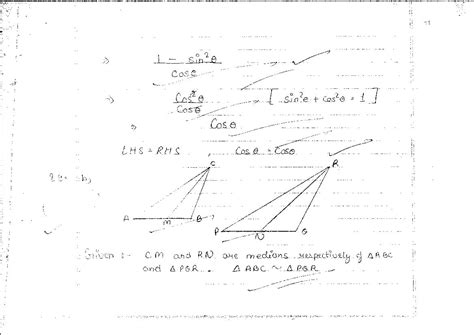 1 - sin²θ
cosθ
⇒ Cos²θ [ sin²θ + cos²θ = 1 ]
Cosθ
⇒ Cosθ
LHS = RHS , Cosθ = Cosθ
C R
A M B
P N Q
Given :- CM and RN are medians respectively of △ABC
and △PQR . △ABC ~ △PQR